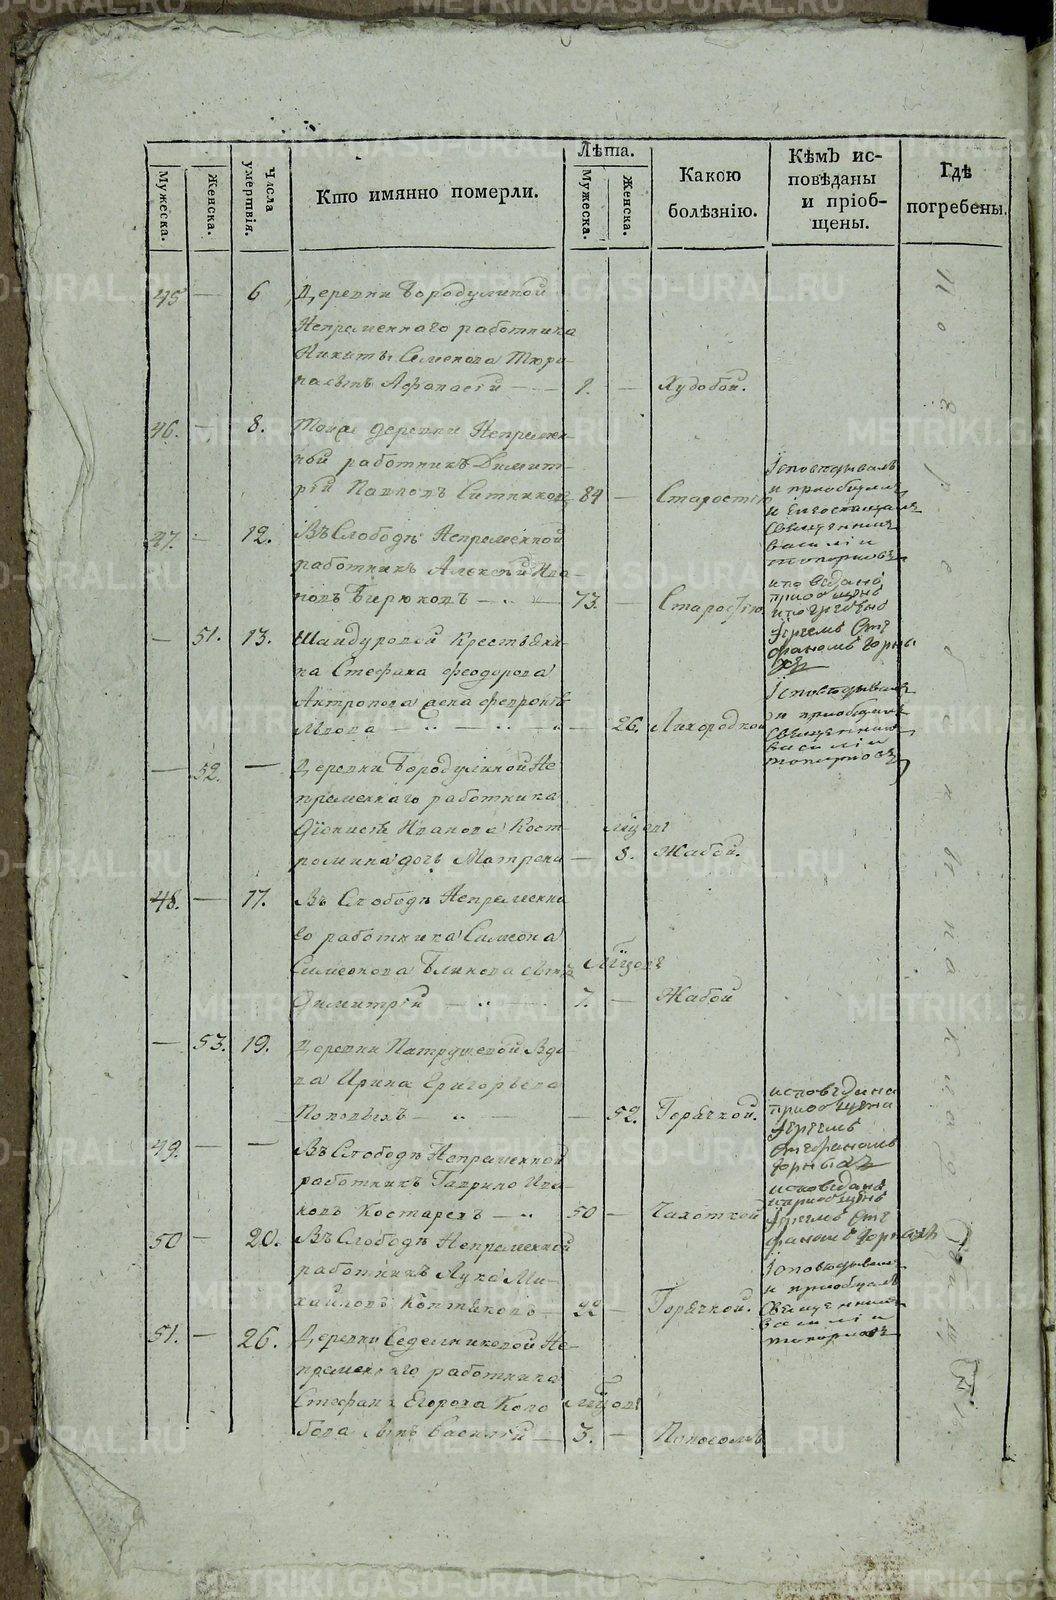 METRIKI.GASO-URAL.RU
Мужеска.
Женска.
Числа умертвія.
Кто имянно померли.
Лѣта.
Мужеска.
Женска.
Какою болѣзнію.
Кѣмъ ис-
повѣданы
и пріоб-
щены.
Гдѣ
погребены.
45 — 6 Деревни Бородулиной
Непременнаго работника
Никиты Семенова Тюри-
Афонасей — 1. — Худобой.
46. — 8. Тойже деревни Непремен-
ный работникъ Димит-
рій Павловъ Ситниковъ 84 — Старостію
Исповѣдывалъ
и приобщилъ
и
Священникъ
Василіи
Топорковъ
47. — 12. Въ Слободѣ Непременной
работникъ Алексѣй Ива-
новъ Бирюковъ — 73. — Старостію
исповѣданъ
приобщенъ
и погребенъ
Іереемъ Сте
фаномъ Горны
хъ
— 51. 13. Шайдуровой Крестьяни-
на Стефана Феодорова
Антропова жена Февронья
— 26. Лихорадкой
Исповѣдывалъ
и приобщилъ
Священникъ
Василіи
Топорковъ
— 52. — Деревни Бородулиной Не
пременнаго работника
Дионисія Иванова Кост-
ромина дочь Матрена —
мѣсяцовъ
8. Жабой.
48. — 17. Въ Слободѣ Непременна
го работника Симеона
Симеонова Блинова сынъ
Димитрій — мѣсяцовъ
7. — Жабой
— 53. 19. Деревни Патрушевой Вдо
ва Ирина Григорьева
Поповыхъ — 52. Горячкой.
исповѣдана
приобщена
Іереемъ
Стефаномъ
Горныхъ
49. — — Въ Слободѣ Непременной
работникъ Гаврило Ива-
новъ Костаревъ — 50 — Чахоткой
исповѣданъ
и приобщенъ
Іереемъ Сте
фаномъ Горныхъ
50 — 20. Въ Слободѣ Непременной
работникъ Лука Ми-
хайловъ Коптяковъ — 22 — Горячкой.
Исповѣдывалъ
и приобщилъ
Священникъ
Василіи
Топорковъ
51. — 26. Деревни Седельниковой Не-
пременнаго работника
Стефана Егорова Коло
бова сынъ Василій — мѣсяцовъ
3. — Поносомъ
Погребены на кладбищѣ